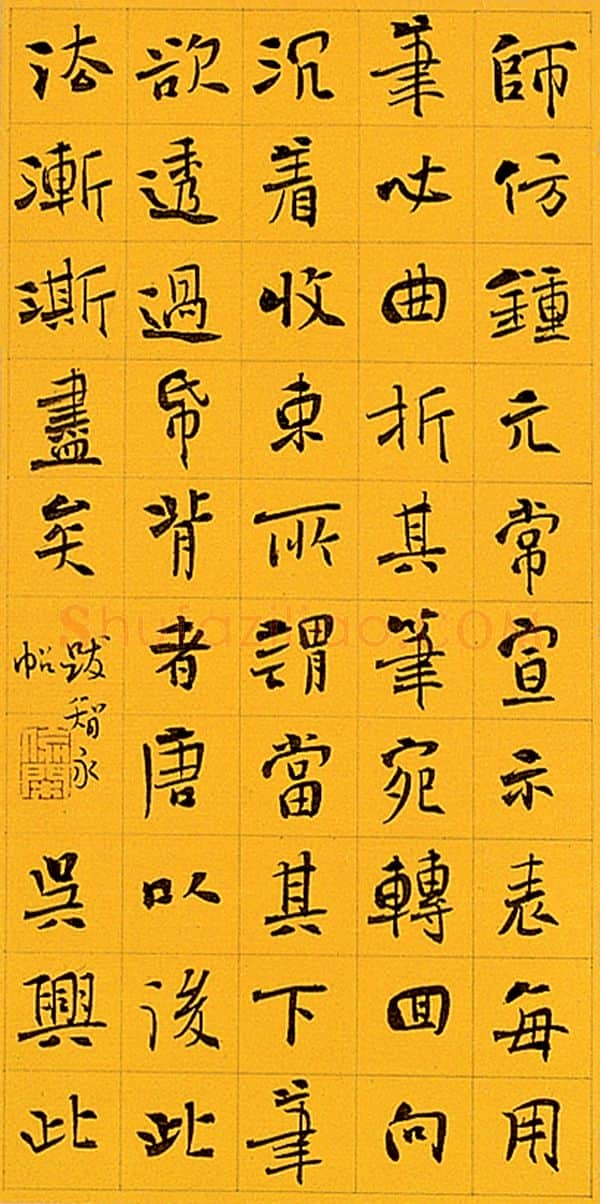 師仿鍾元常宣示表每用
筆必曲折其筆宛轉回向
沉着收束所謂當其下筆
欲透過帋背者唐以後此
法漸澌盡矣
跋智永
帖
吳興此
Shufaziliao.COM